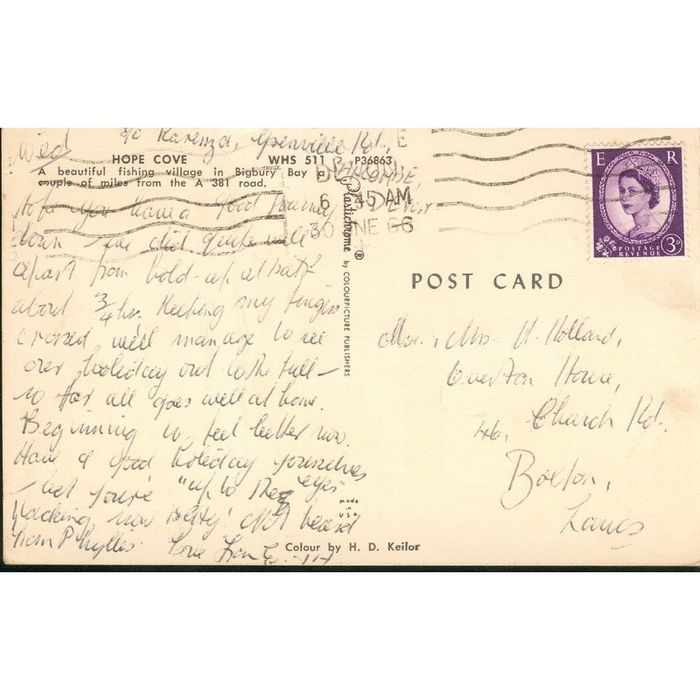 Wed c/o Karenza, Grenville Rd.,
HOPE COVE WHS 511 P36863
A beautiful fishing village in Bigbury Bay a
couple of miles from the A 381 road.
SALCOMBE
DEVON
6 45 AM
30 JNE 66
Hope you had a good journey
down – we did quite well
apart from hold-up at Bath
about 3/4 hr. Keeping my fingers
crossed, we'll manage to see
our holiday out to the full –
so far all goes well at home.
Beginning to feel better now.
Have a good holiday yourselves
– bet you're "up to the eyes"
packing, now Betty. Not heard
from Phyllis. Love from
Plastichrome ® BY COLOURPICTURE PUBLISHERS
made in USA
Colour by H. D. Keilor
E R
POSTAGE
REVENUE
3D
POST CARD
Mr. & Mrs. H. Holland,
Overton House,
46, Church Rd.,
Bolton,
Lancs